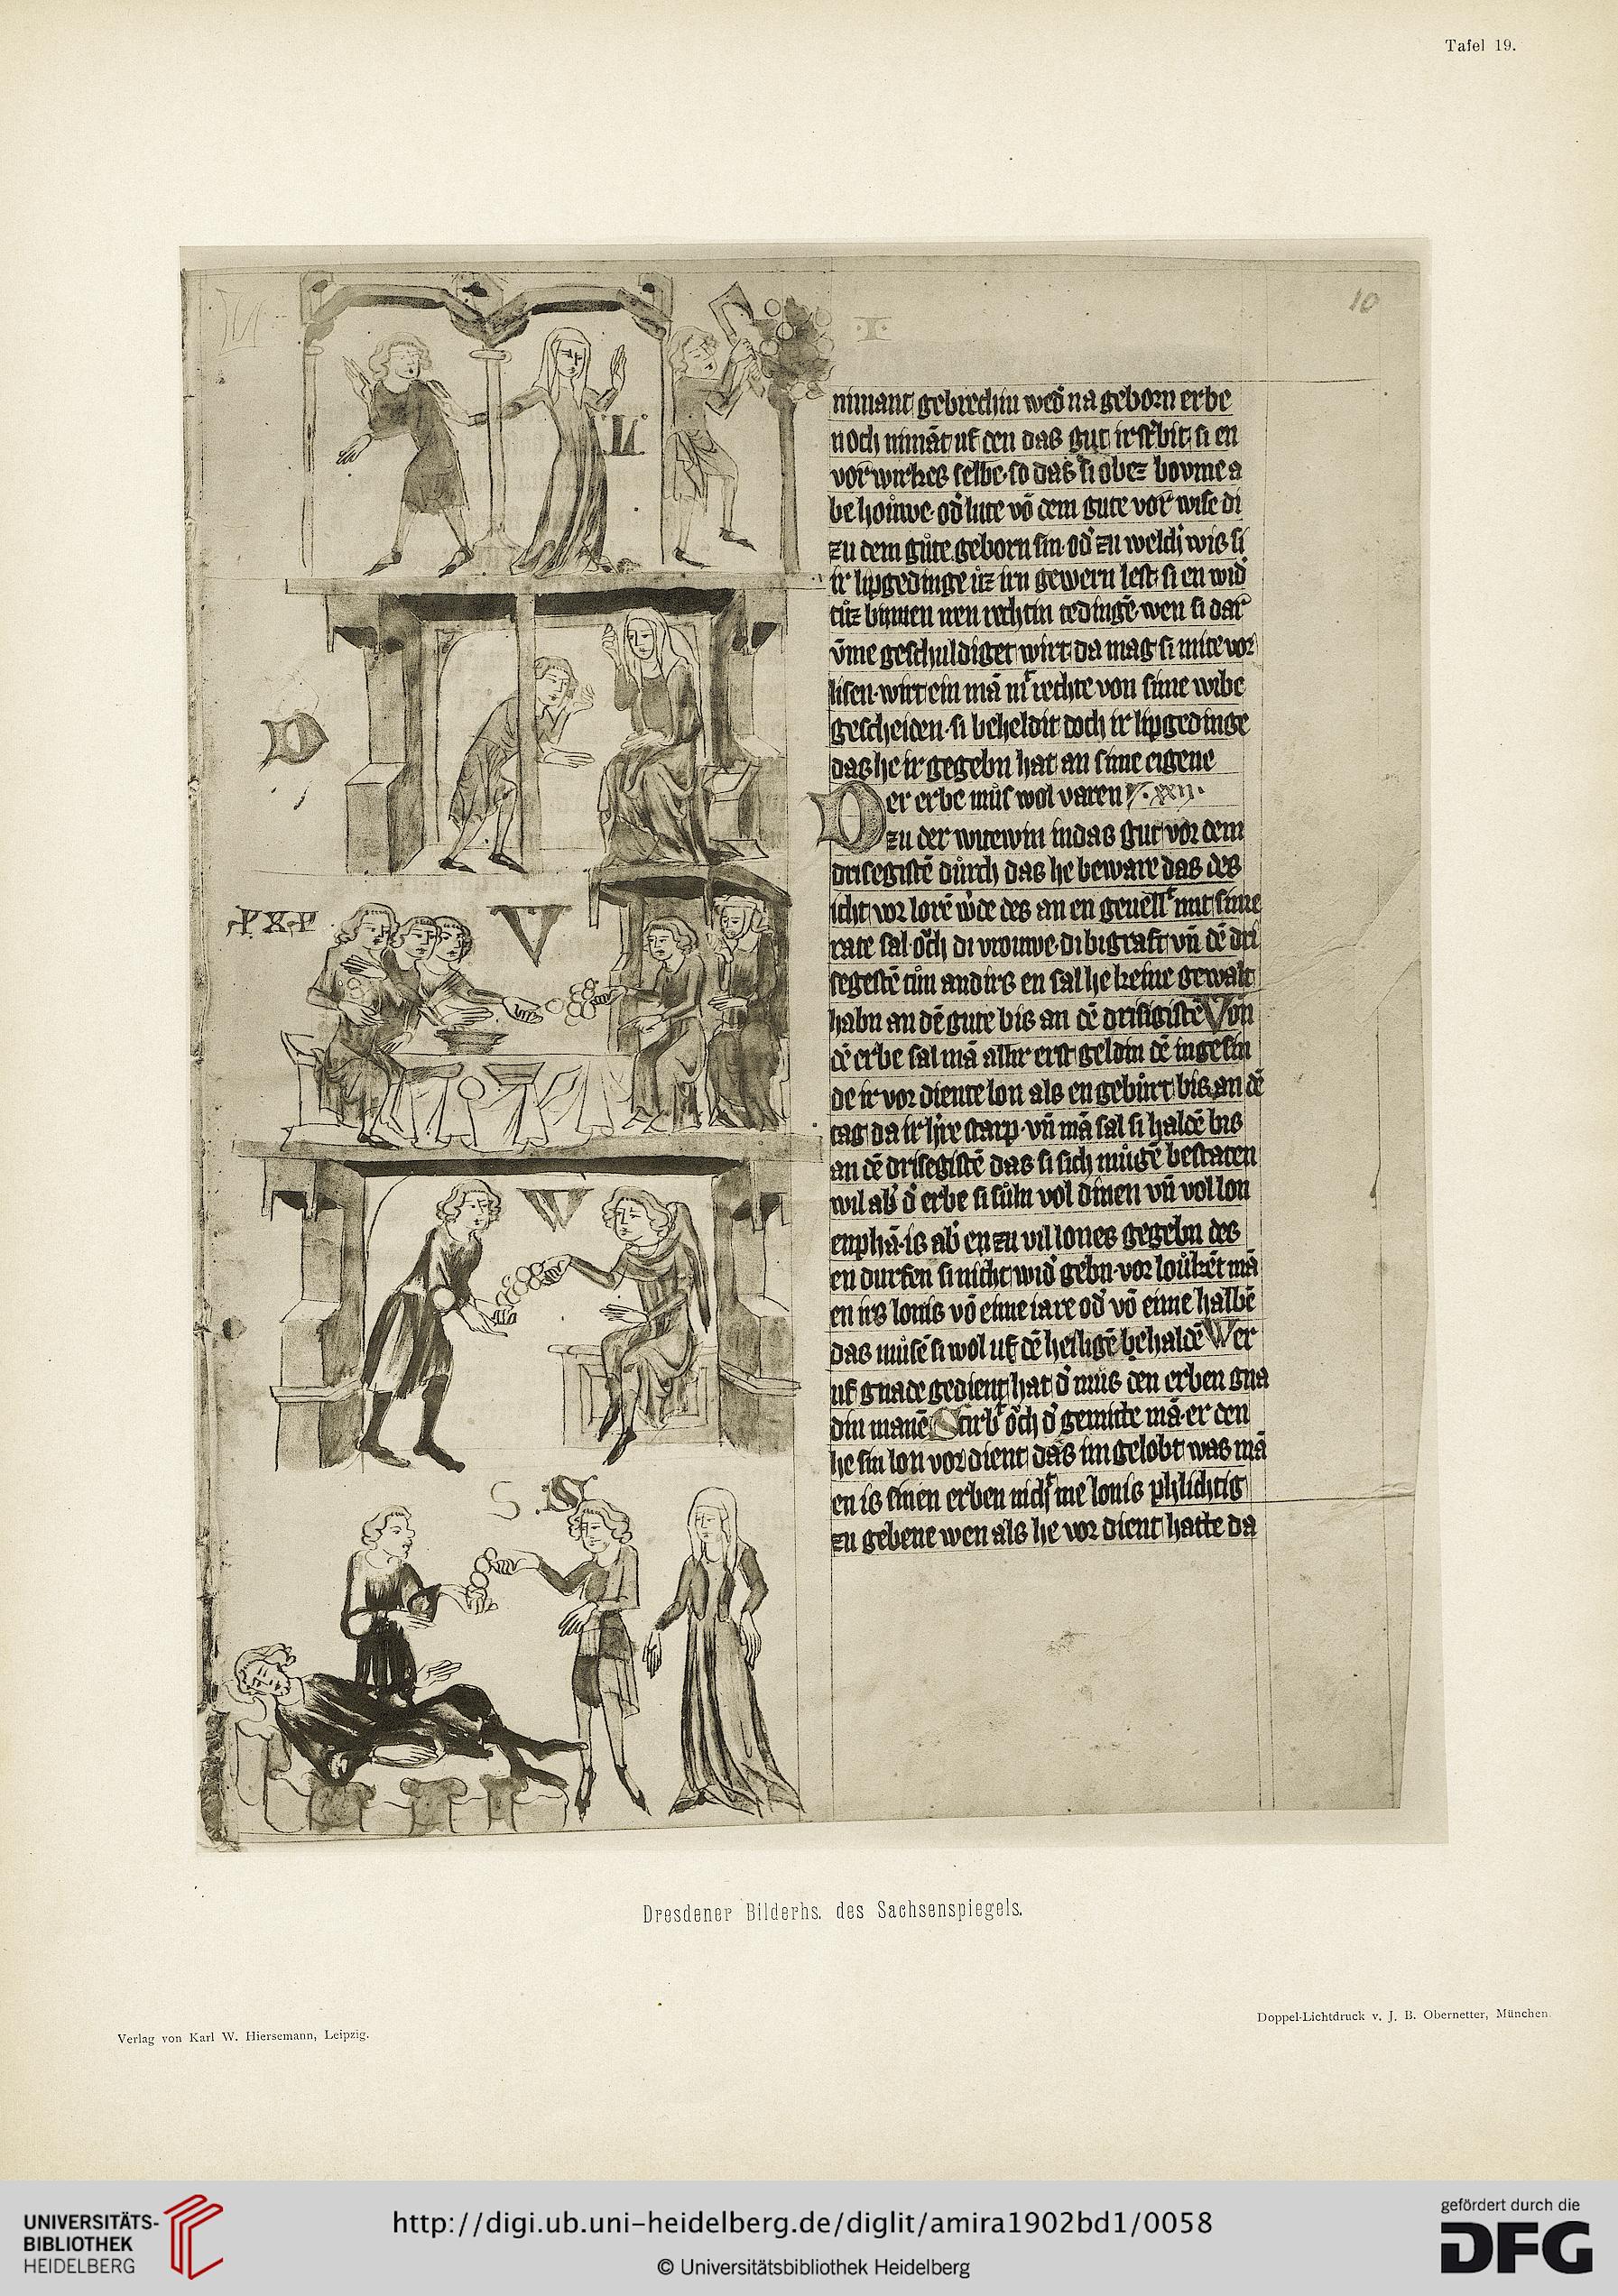 Tafel 19.
10
I
nimant gebrechin wedͦ na geborn erbe
noch nimāt uf den das gut irstˀbit, si en
vorwirkes selbe so das si obez bovme a
behoiwe. odˀ lute vō dem gute vorwise di
zu dem gůte geborn sin. odˀ zu welchˀ wis si
ir lipgedinge ůz irn gewern lest. si en widˀ
tůz binnen nen rechtin tedingē. wen si dar
ūme geschuldiget wirt. da mag si mite vor
lisen. wirt ein mā mˀ rechte von sime wibe
gescheiden. si beheldit doch ir lipgedinge
das he ir gegebn hat an sime eigene
Der erbe můs wol varen xxij.
zu der witewin in das gut vor dem
drisegistē důrch das he beware das des
icht vorlorē wˀde des an en gevellˀ mit sime
rate sal ōch di vrouwe di bigraft vn̄ dē dri
segestē tůn andirs en sal he keine gewalt
habn an dē gute bis an dē drisigistē Von
dē erbe sal mā allir erst geldin dē ingesin
de ir vordiente lon als en gebůrt bis an dē
tag da ir hˀre starp vn̄ mā sal si haldē bis
an dē drisegistē das si sich mugē bestaten
wil abˀ dˀ erbe si sůln vol dinen vn̄ vol lon
enphā. is abˀ en zu vil lones gegebn des
en durfen si nicht widˀ gebn. vorloůkēt mā
en irs lonis vō eime iare odˀ vō eime halbē
das můsē si wol uf dē heiligē behaldē Wer
uf gnade gedient hat dˀ můs den erben gna
din manē Stirbˀ ōch dˀ gemitte mā. er den
he sin lon vordient das im gelobt was mā
en is sinen erben nichˀ me lonis phlichtig
zu gebene wen als he vordient hatte da
D
PXP
V
W
S S
Dresdener Bilderhs. des Sachsenspiegels.
Verlag von Karl W. Hiersemann, Leipzig.
Doppel-Lichtdruck v. J. B. Obernetter, München.
UNIVERSITÄTS-
BIBLIOTHEK
HEIDELBERG
http://digi.ub.uni-heidelberg.de/diglit/amira1902bd1/0058
© Universitätsbibliothek Heidelberg
gefördert durch die
DFG